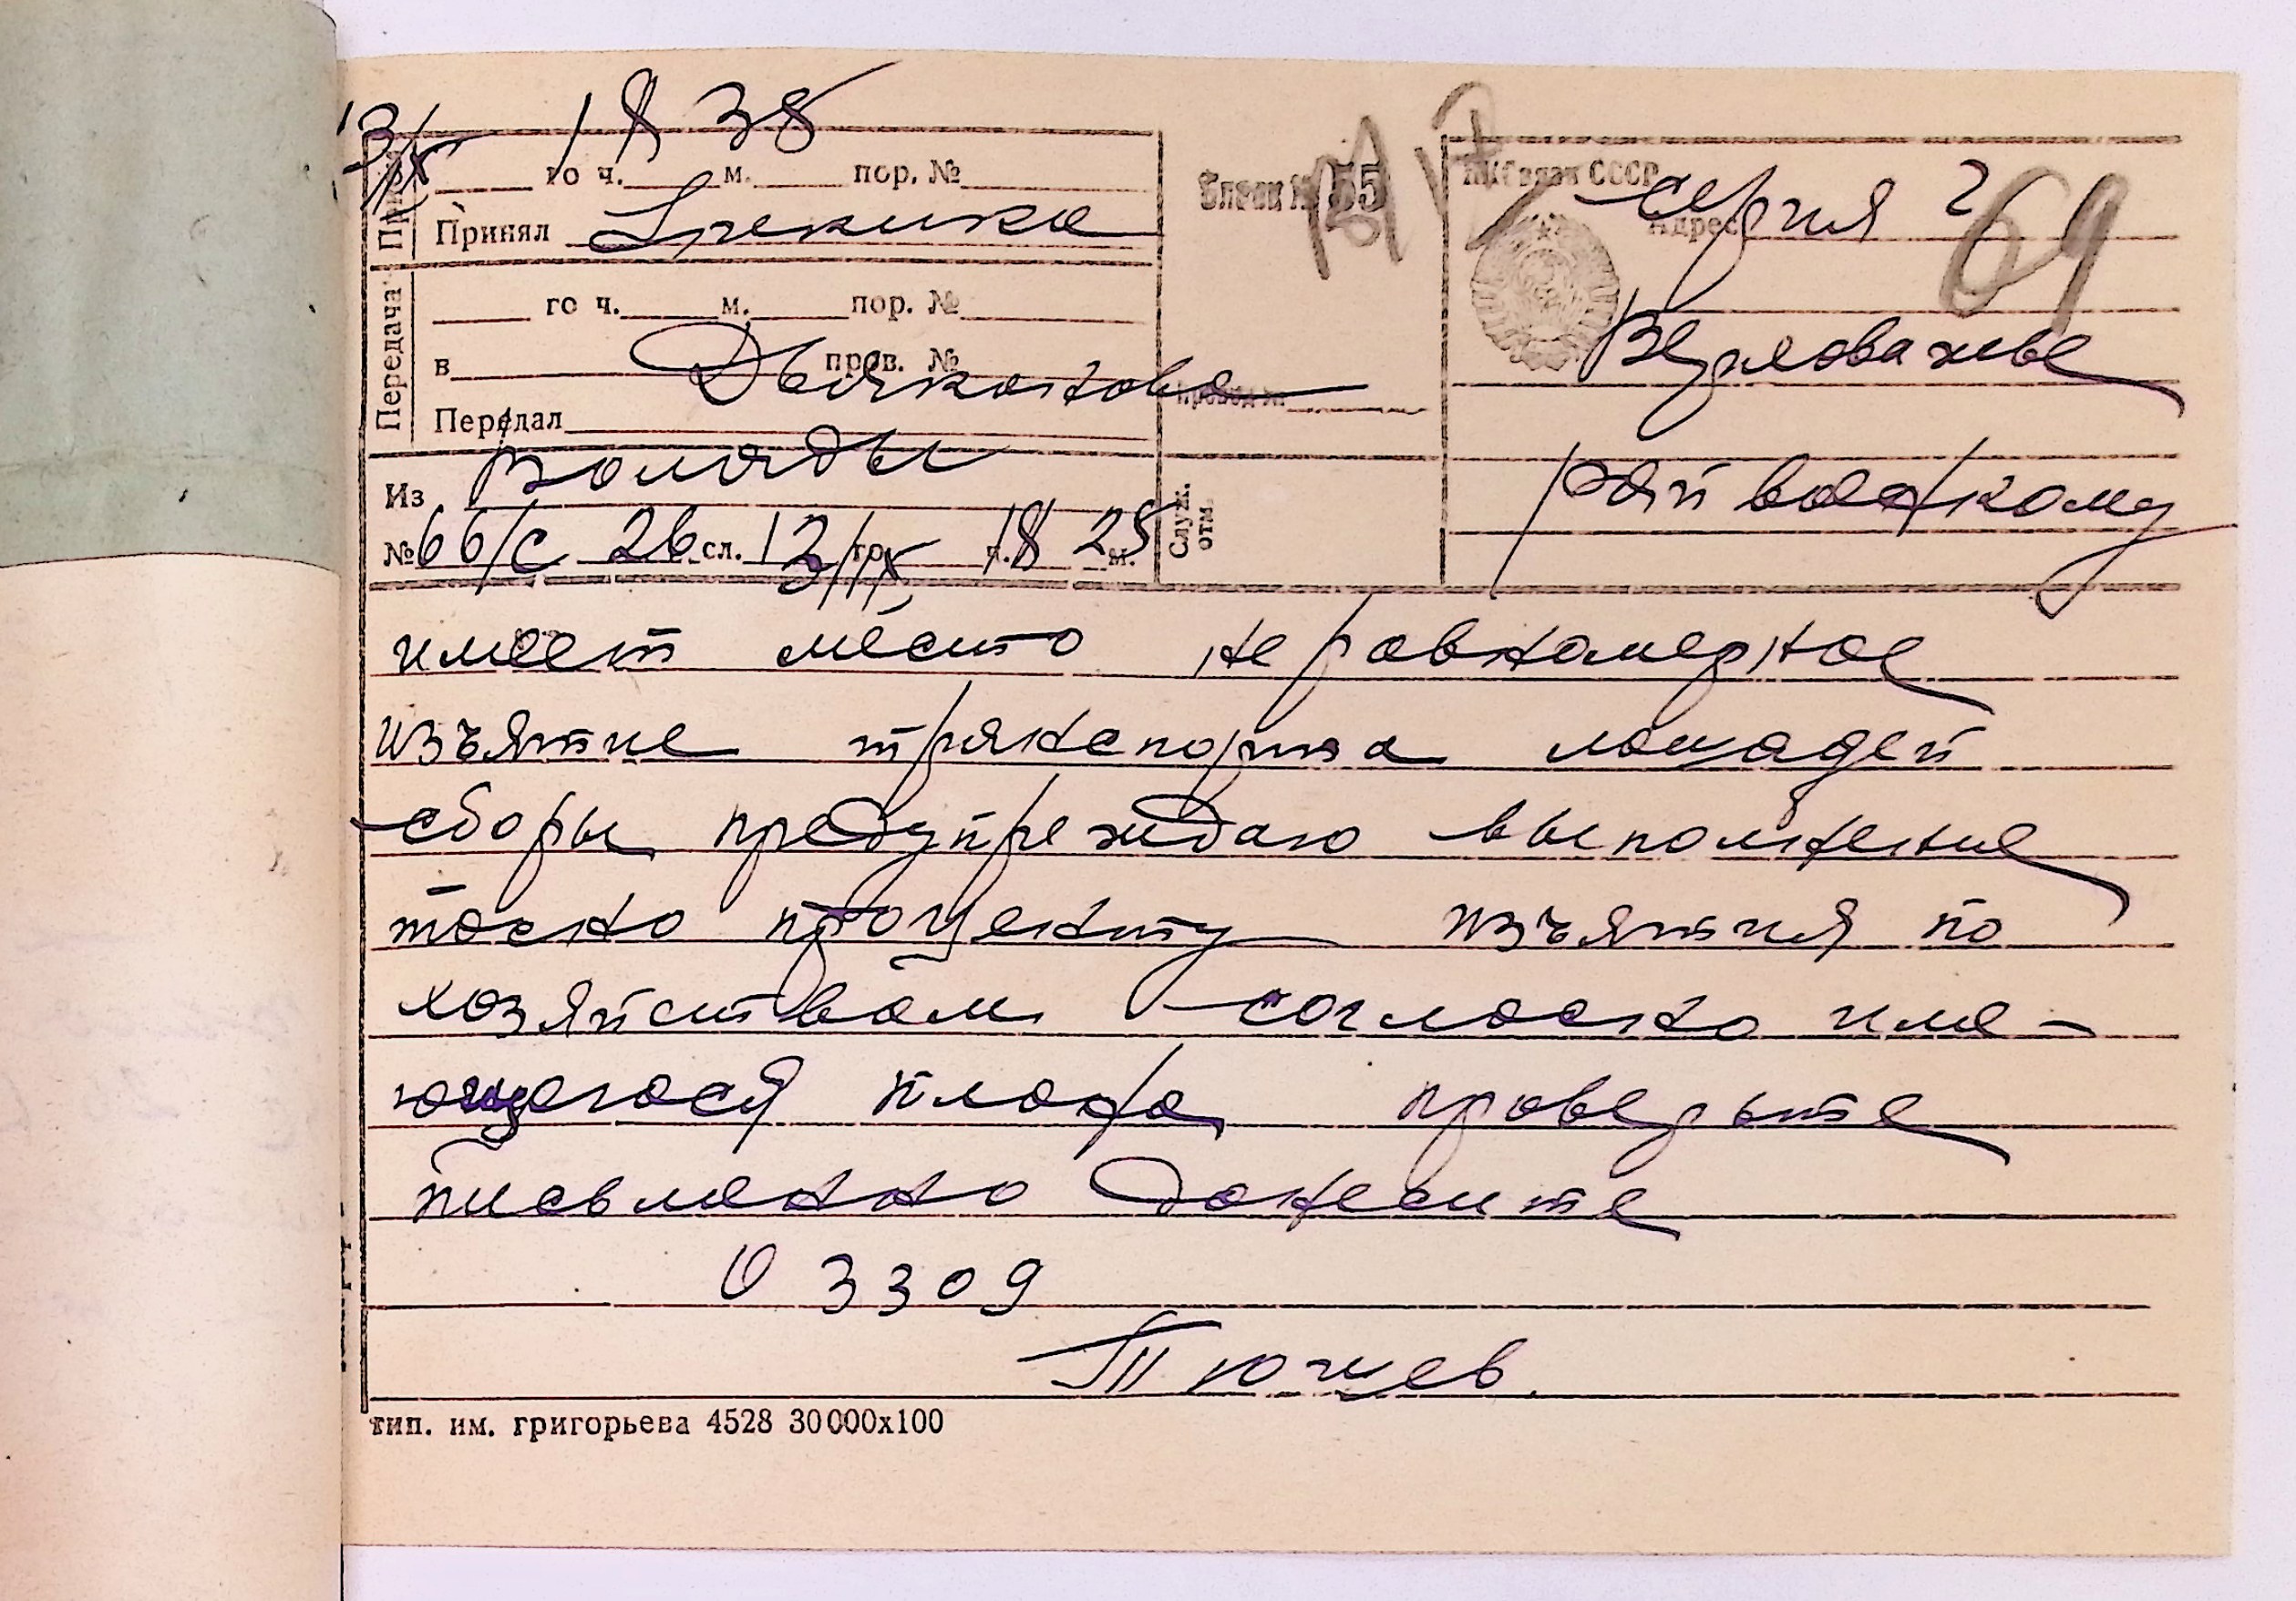 13/IX 18 38
го ч. м. пор. №
Принял
Передача
го ч. м. пор. №
в пров. №
Дьяконова
Передал
Из Вологды
№ 66/с 26 сл. 13/IX го ч. 18 25 м.
Бланк № 55
Служ. отм.
НКСвязи СССР
Адрес
серия 2
69
Верховажье
райвоенкому
имеет место неравномерное
изъятие транспорта лошадей
сборы предупреждаю выполнение
точно проценту изъятия по
хозяйствам согласно име-
ющегося плана проверьте
письменно донесите
03309
Тючев
тип. им. григорьева 4528 30000х100